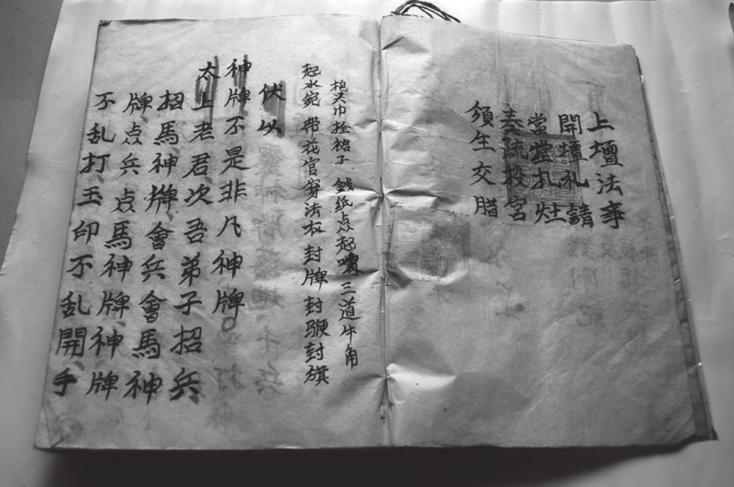 上壇法事
開壇礼請
當壇扎灶
表疏投宮
領生交腊
抱头巾拴裙子 錢紙点起 三道牛角
起水碗 带花官穿法衣 封牌封鞭封旗
伏以
神牌不是非凡神牌
太上老君次吾弟子招兵
招馬神牌會兵會馬神
牌点兵点馬神牌神牌
不乱打玉印不乱開手